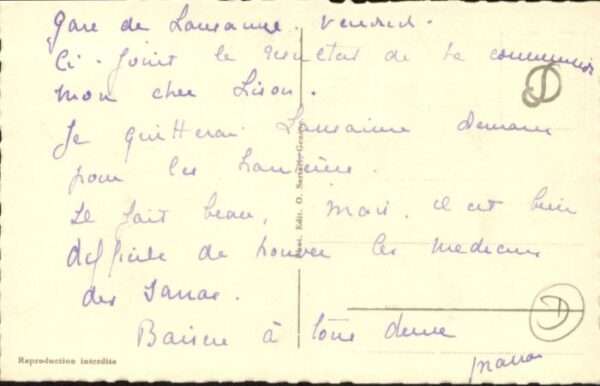 Gare de Lausanne. Vendredi.
Ci-joint le résultat de ta commission
mon cher Lison.
Je quitterai Lausanne demain
pour les
Il fait beau, mais, il est bien
difficile de trouver les médecins
des Sanas.
Baisers à tous deux
D
D
Phot. Edit. O.
Reproduction interdite